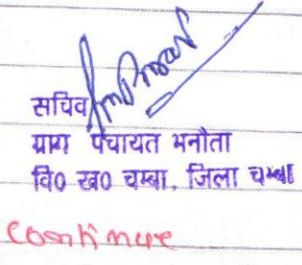 सचिव
ग्राम पंचायत भनौता
वि0 ख0 चम्बा, जिला चम्बा
Continue